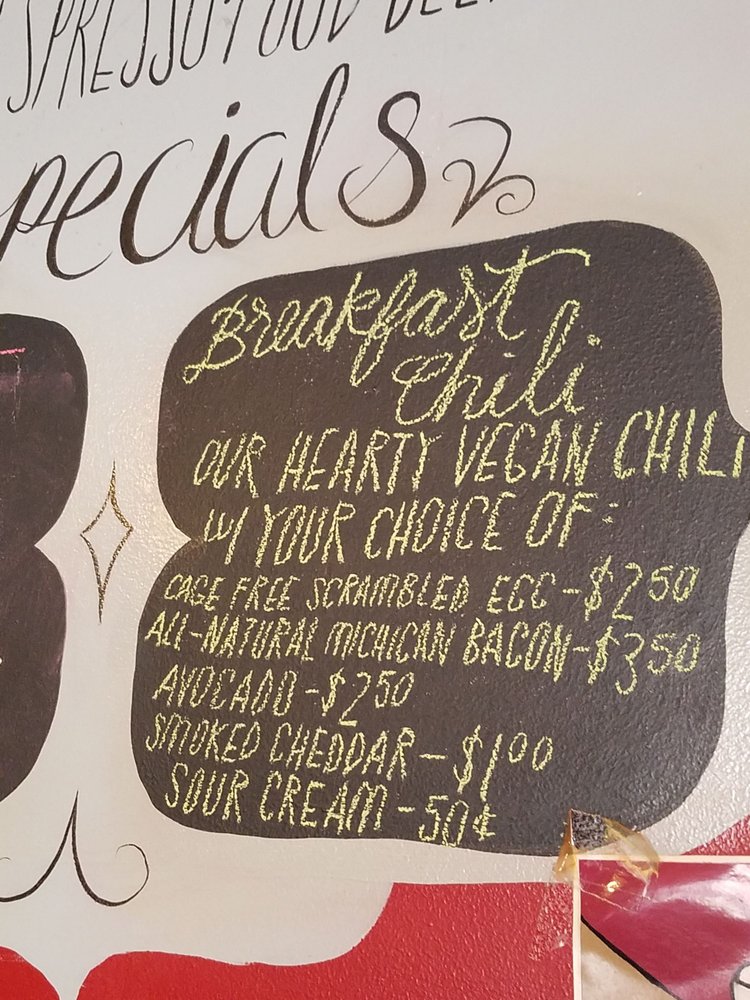 Specials
Breakfast
Chili
OUR HEARTY VEGAN CHILI
w/ YOUR CHOICE OF:
CAGE FREE SCRAMBLED EGG-$250
ALL-NATURAL MICHIGAN BACON-$350
AVOCADO-$250
SMOKED CHEDDAR-$100
SOUR CREAM-50¢